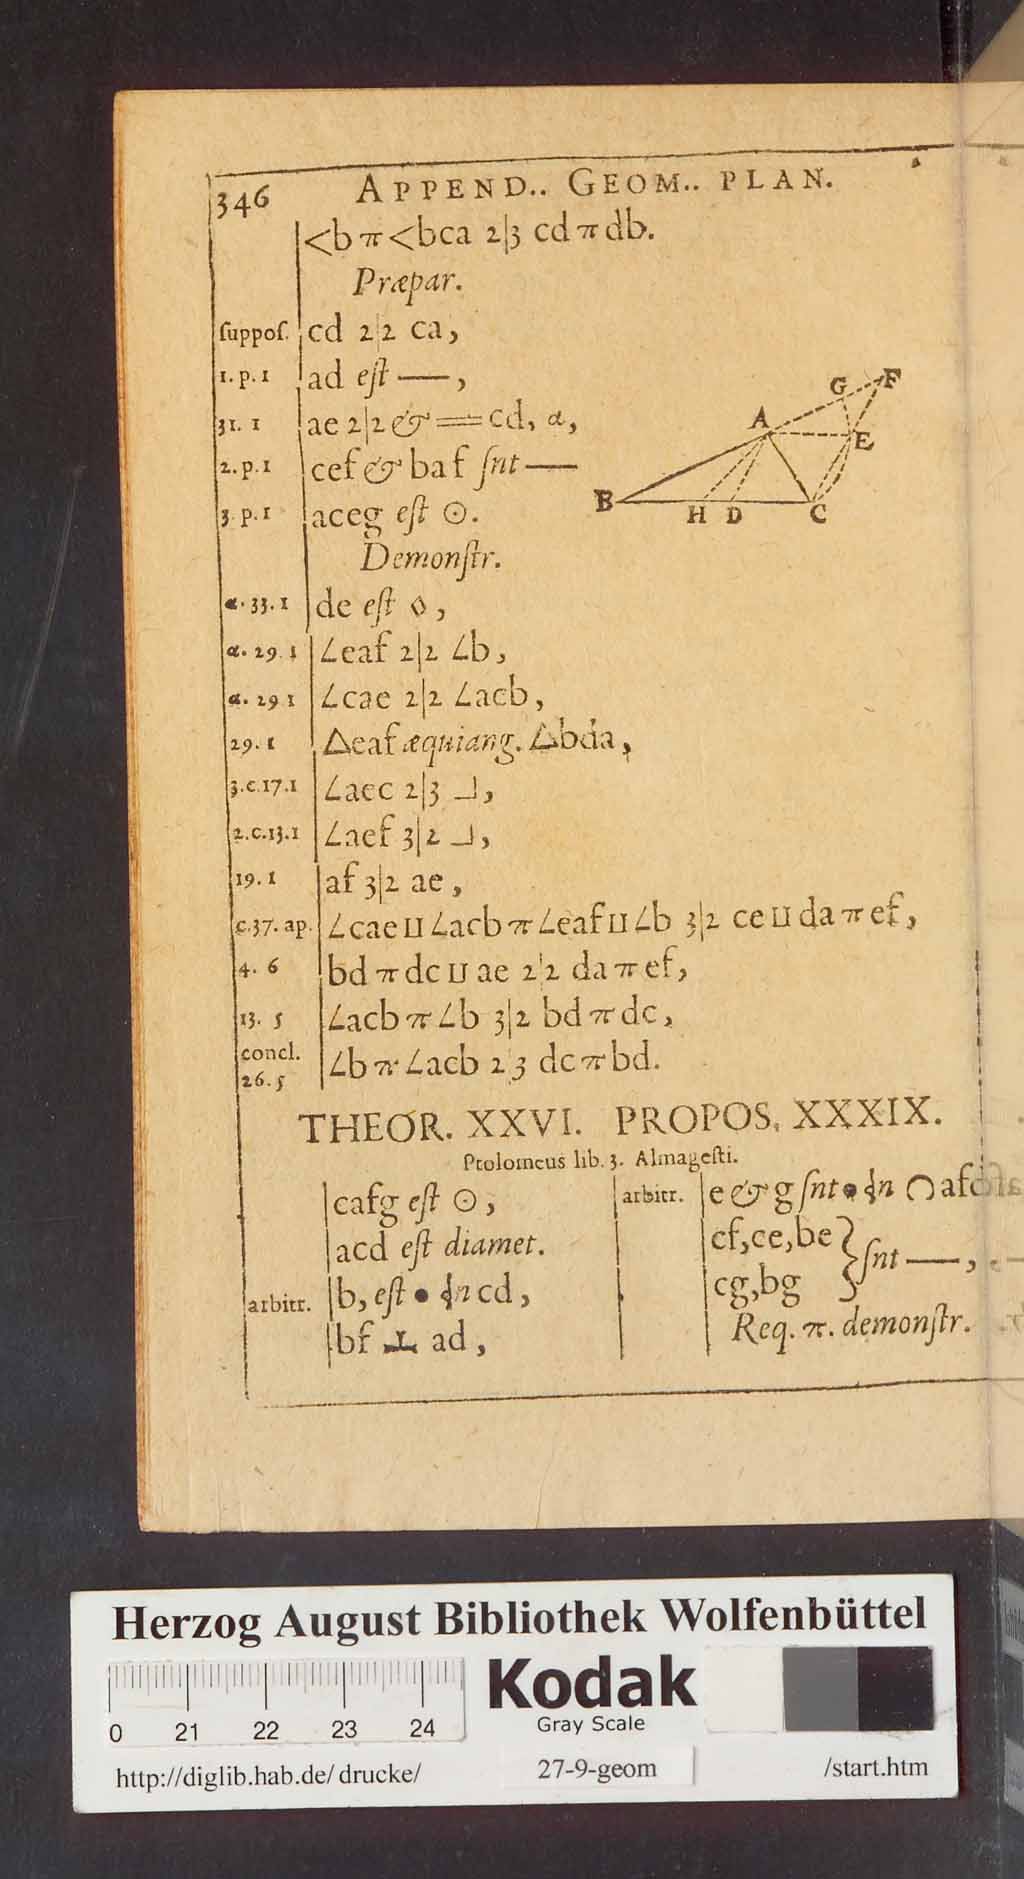 346 APPEND.. GEOM.. PLAN.
<b π <bca 2|3 cd π db.
Præpar.
ſuppoſ. cd 2|2 ca,
1. p. 1 ad eſt —,
31. 1 ae 2|2 & = cd, α,
2. p. 1 cef & baf ſnt —
3. p. 1 aceg eſt ⊙.
G F
A E
B H D C
Demonſtr.
α. 33. 1 de eſt ◊,
α. 29. 1 ∠eaf 2|2 ∠b,
α. 29 1 ∠cae 2|2 ∠acb,
29. 1 △eaf æquiang. △bda,
3.c.17.1 ∠aec 2|3 ⅃,
2.c.13.1 ∠aef 3|2 ⅃,
19. 1 af 3|2 ae,
c.37. ap. ∠cae ⊔ ∠acb π ∠eaf ⊔ ∠b 3|2 ce ⊔ da π ef,
4. 6 bd π dc ⊔ ae 2|2 da π ef,
13. 5 ∠acb π ∠b 3|2 bd π dc,
concl.
26. 5 ∠b π ∠acb 2|3 dc π bd.
THEOR. XXVI. PROPOS. XXXIX.
Ptolomeus lib. 3. Almageſti.
cafg eſt ⊙,
acd eſt diamet.
arbitr. b, eſt • in cd,
bf ⊥ ad,
arbitr. e & g ſnt • in ∩ afd
cf,ce,be
cg,bg } ſnt —,
Req. π. demonſtr.
Herzog August Bibliothek Wolfenbüttel
0 21 22 23 24
Kodak
Gray Scale
http://diglib.hab.de/drucke/ 27-9-geom /start.htm